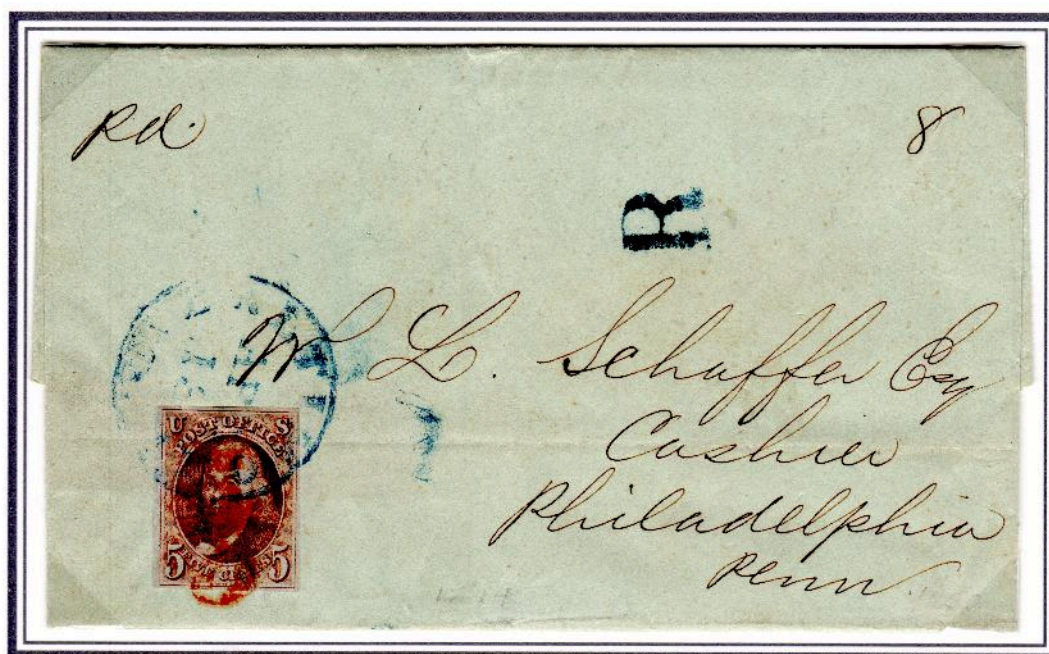 Pd. 8
R
W L. Schaffer Esq
Cashier
Philadelphia
Penn.
U S
POST OFFICE
5 FIVE CENTS 5